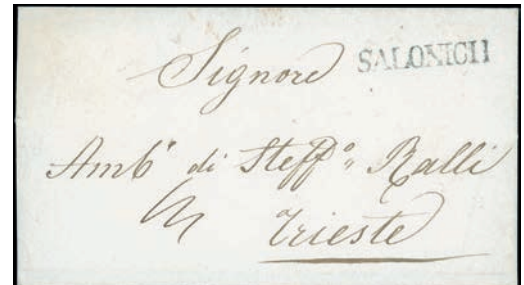 Signore SALONICH
Amb° di Steff° Ralli
Trieste